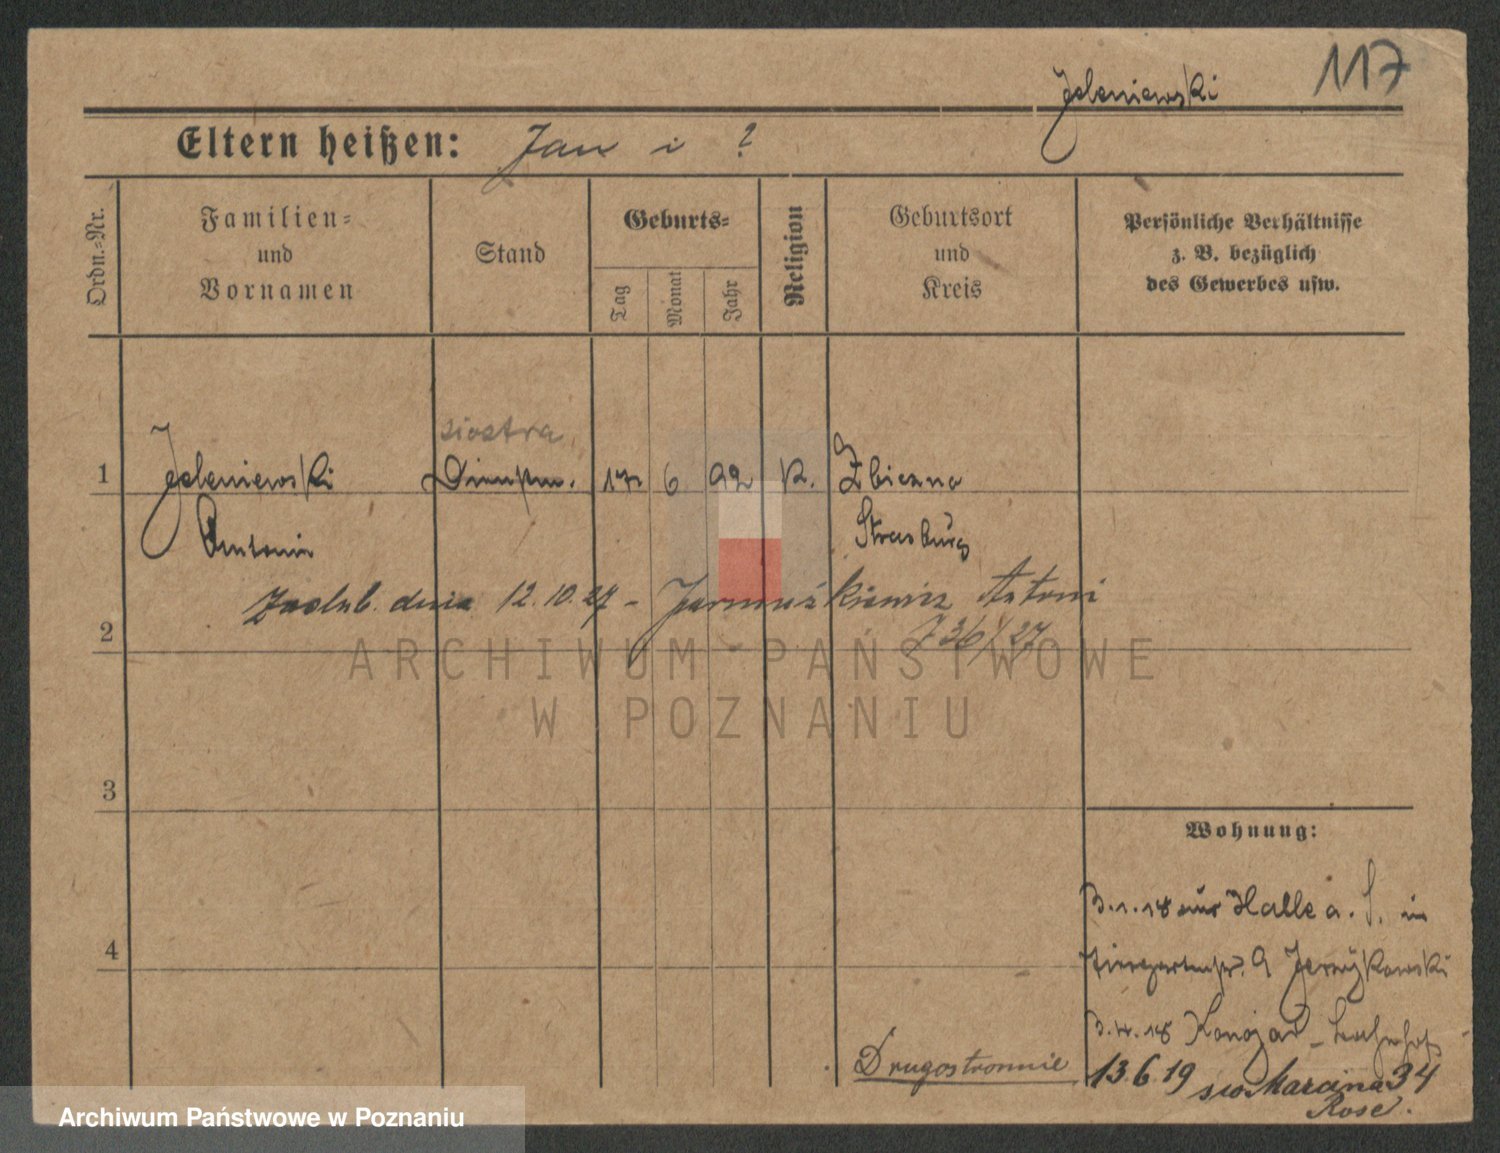 117
Jeleniewski
Eltern heißen: Jan i ?
Ordn.-Nr.
Familien-
und
Vornamen
Stand
Geburts-
Tag
Monat
Jahr
Religion
Geburtsort
und
Kreis
Persönliche Verhältnisse
z. B. bezüglich
des Gewerbes usw.
siostra
1 Jeleniewski Dienstm. 17 6 92 K. Zbiczno
Antonie Strasburg
zaślub. dnia 12.10.27 - Antoni
736/27
2
3
4
Wohnung:
3.1.18 aus Halle a. S. in
9 Jerzykowski
3.4.18 Konojad - Bahnhof
13.6.19 św. Marcina 34
Rose.
Drugostronnie
ARCHIWUM PAŃSTWOWE
W POZNANIU
Archiwum Państwowe w Poznaniu